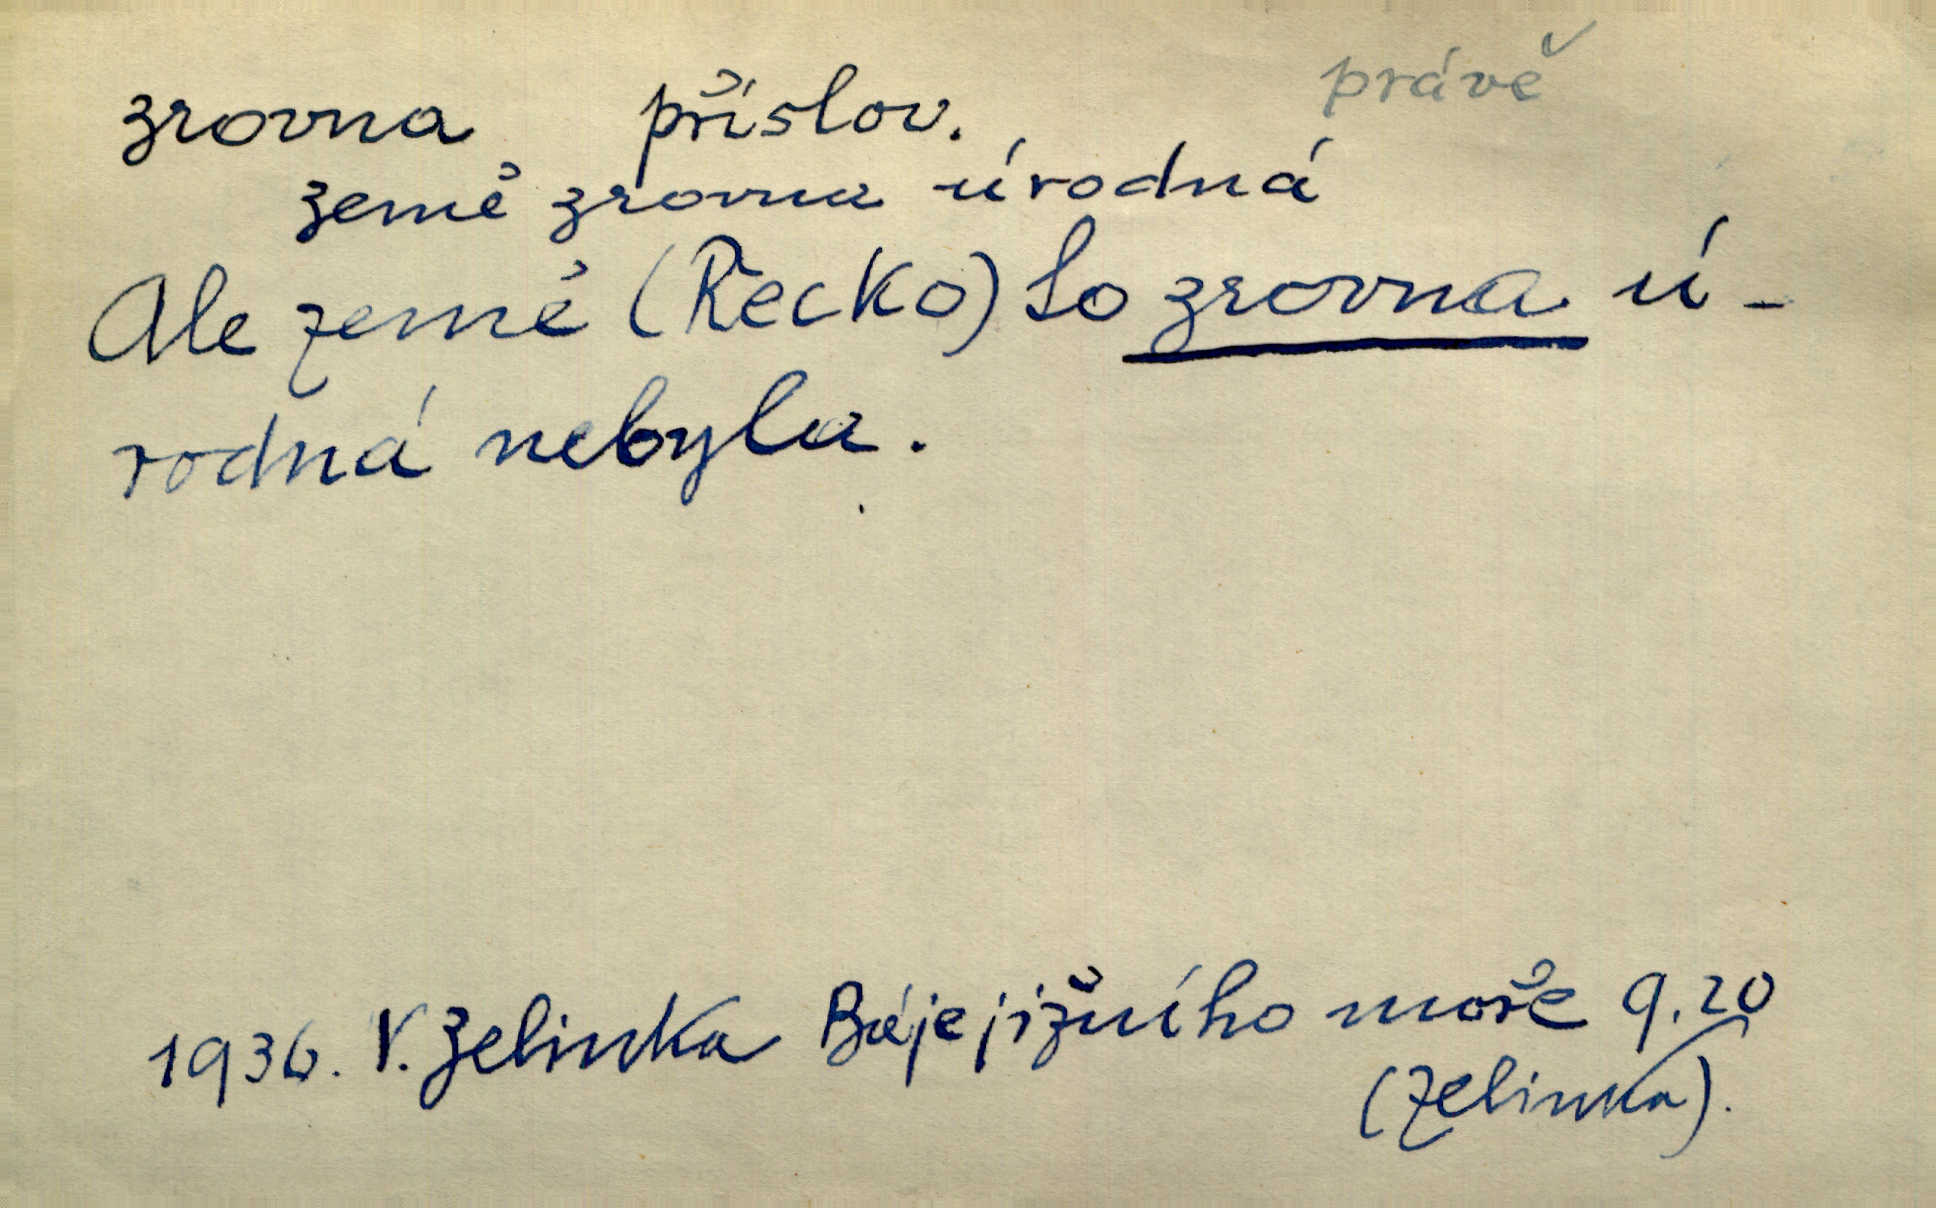 zrovna příslov. právě
země zrovna úrodná
Ale země (Řecko) to zrovna ú-
rodná nebyla.
1936. V. Zelinka Báje jižního moře 9.20
(Zelinka).